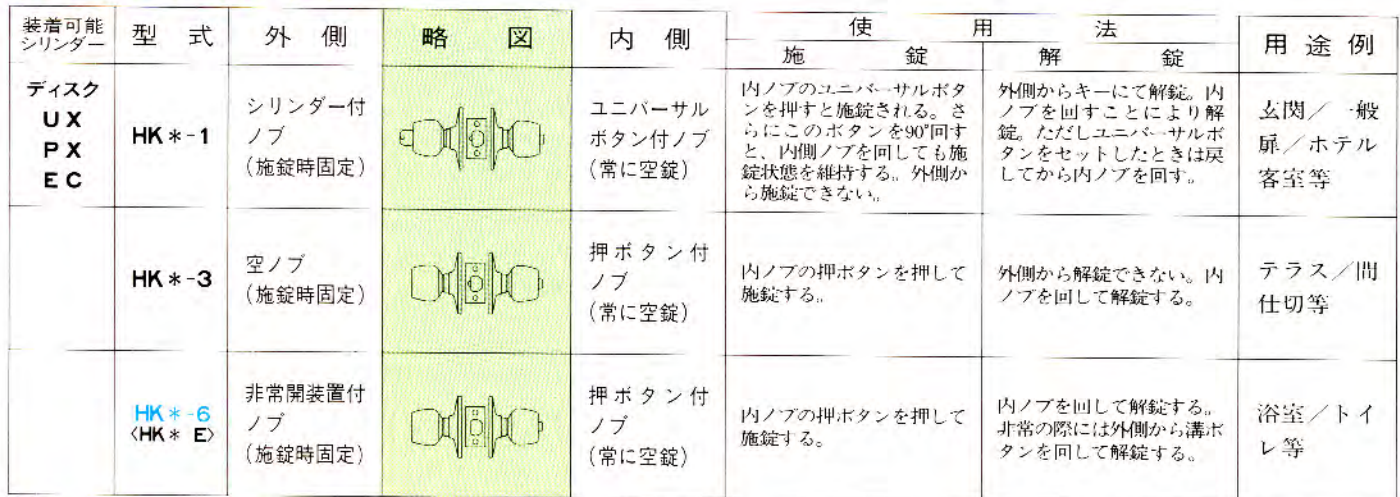 装着可能
シリンダー
型 式
外 側
略 図
内 側
使 用 法
施 錠
解 錠
用 途 例
ディスク
UX
PX
EC
HK*-1
シリンダー付
ノブ
(施錠時固定)
ユニバーサル
ボタン付ノブ
(常に空錠)
内ノブのユニバーサルボタ
ンを押すと施錠される。さ
らにこのボタンを90°回す
と、内側ノブを回しても施
錠状態を維持する。外側か
ら施錠できない。
外側からキーにて解錠。内
ノブを回すことにより解
錠。ただしユニバーサルボ
タンをセットしたときは戻
してから内ノブを回す。
玄関/一般
扉/ホテル
客室等
HK*-3
空ノブ
(施錠時固定)
押ボタン付
ノブ
(常に空錠)
内ノブの押ボタンを押して
施錠する。
外側から解錠できない。内
ノブを回して解錠する。
テラス/間
仕切等
HK*-6
〈HK* E〉
非常開装置付
ノブ
(施錠時固定)
押ボタン付
ノブ
(常に空錠)
内ノブの押ボタンを押して
施錠する。
内ノブを回して解錠する。
非常の際には外側から溝ボ
タンを回して解錠する。
浴室/トイ
レ等